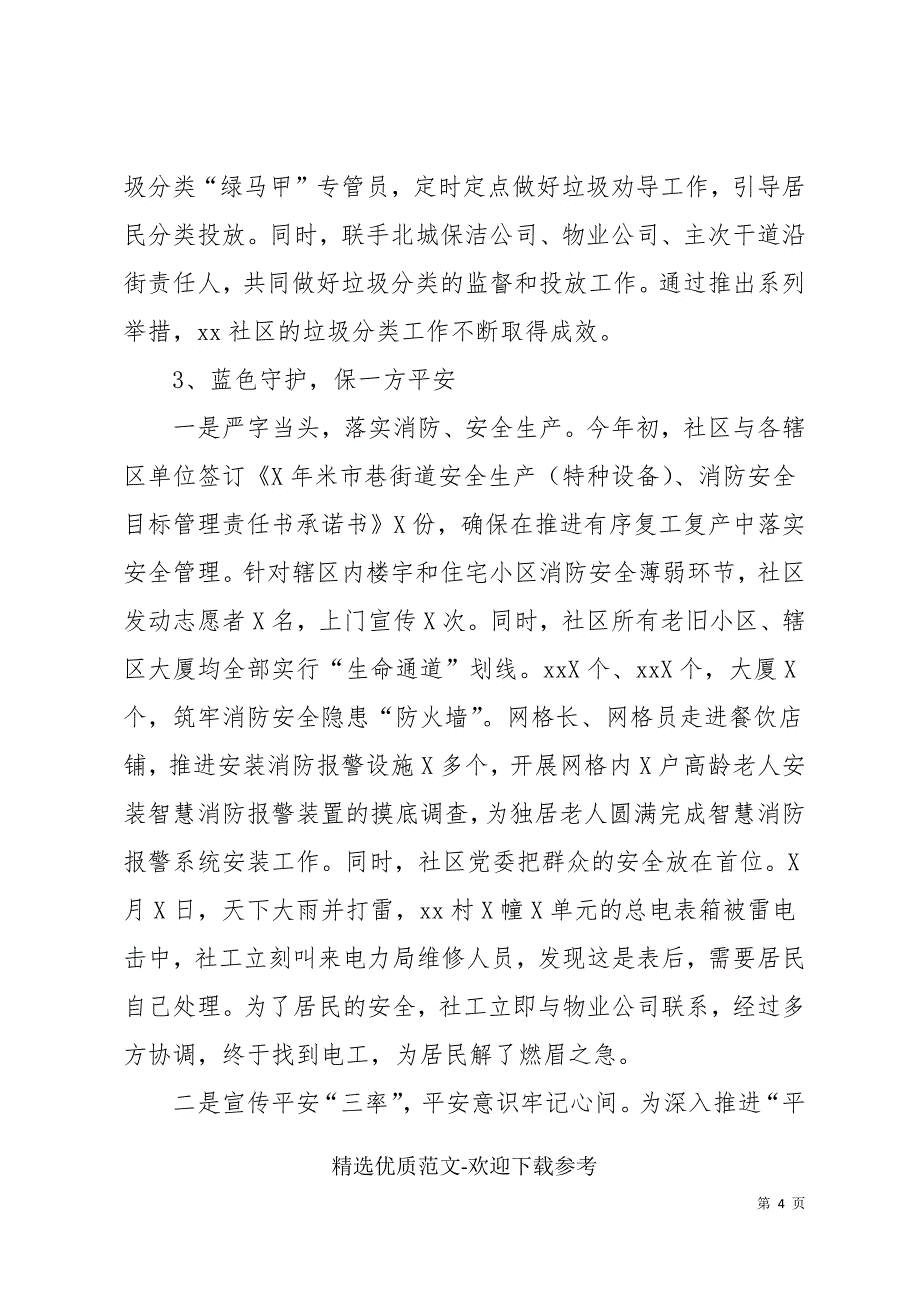 圾分类“绿马甲”专管员，定时定点做好垃圾劝导工作，引导居
民分类投放。同时，联手北城保洁公司、物业公司、主次干道沿
街责任人，共同做好垃圾分类的监督和投放工作。通过推出系列
举措，xx 社区的垃圾分类工作不断取得成效。
3、蓝色守护，保一方平安
一是严字当头，落实消防、安全生产。今年初，社区与各辖
区单位签订《X 年米市巷街道安全生产（特种设备）、消防安全
目标管理责任书承诺书》X 份，确保在推进有序复工复产中落实
安全管理。针对辖区内楼宇和住宅小区消防安全薄弱环节，社区
发动志愿者 X 名，上门宣传 X 次。同时，社区所有老旧小区、辖
区大厦均全部实行“生命通道”划线。xxX 个、xxX 个，大厦 X
个，筑牢消防安全隐患“防火墙”。网格长、网格员走进餐饮店
铺，推进安装消防报警设施 X 多个，开展网格内 X 户高龄老人安
装智慧消防报警装置的摸底调查，为独居老人圆满完成智慧消防
报警系统安装工作。同时，社区党委把群众的安全放在首位。X
月 X 日，天下大雨并打雷，xx 村 X 幢 X 单元的总电表箱被雷电
击中，社工立刻叫来电力局维修人员，发现这是表后，需要居民
自己处理。为了居民的安全，社工立即与物业公司联系，经过多
方协调，终于找到电工，为居民解了燃眉之急。
二是宣传平安“三率”，平安意识牢记心间。为深入推进“平
精选优质范文-欢迎下载参考
第 4 页